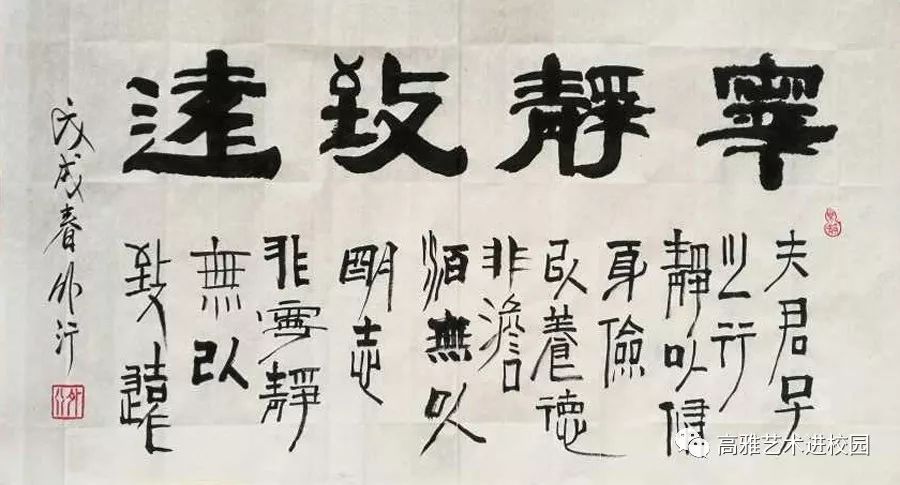 寧靜致遠
夫君子
之行
靜以修
身儉
以養德
非澹
泊無以
明志
非寧靜
無以
致遠
戊戌春
高雅艺术进校园